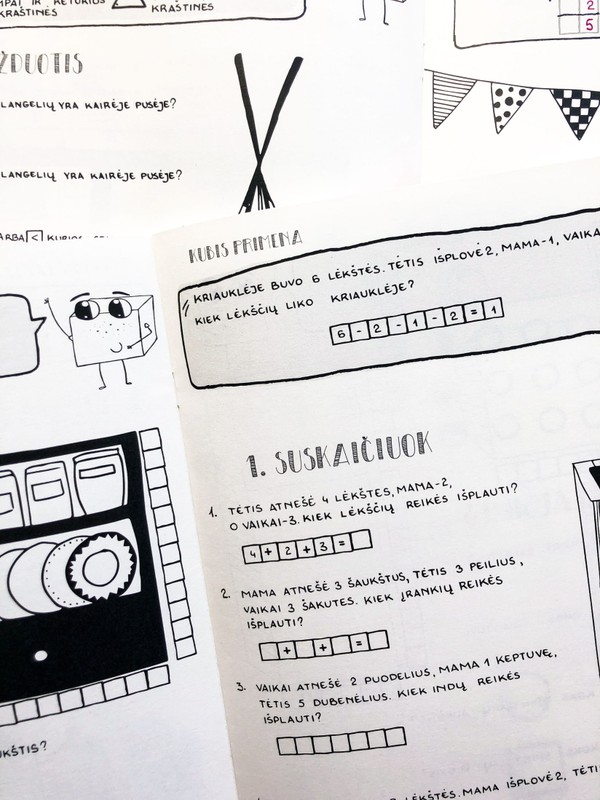 IR KETURIOS
KRAŠTINĖS
KRAŠTINĖS
2
5
LANGELIŲ YRA KAIRĖJE PUSĖJE?
LANGELIŲ YRA KAIRĖJE PUSĖJE?
<
KUBIS PRIMENA
KRIAUKLĖJE BUVO 6 LĖKŠTĖS. TĖTIS IŠPLOVĖ 2, MAMA-1, VAIKA
KIEK LĖKŠČIŲ LIKO KRIAUKLĖJE?
6 - 2 - 1 - 2 = 1
1. SUSKAIČIUOK
1. TĖTIS ATNEŠĖ 4 LĖKŠTES, MAMA-2,
O VAIKAI-3. KIEK LĖKŠČIŲ REIKĖS IŠPLAUTI?
4 + 2 + 3 =
2. MAMA ATNEŠĖ 3 ŠAUKŠTUS, TĖTIS 3 PEILIUS,
VAIKAI 3 ŠAKUTES. KIEK ĮRANKIŲ REIKĖS
IŠPLAUTI?
+ + =
3. VAIKAI ATNEŠĖ 2 PUODELIUS, MAMA 1 KEPTUVĘ,
TĖTIS 5 DUBENĖLIUS. KIEK INDŲ REIKĖS
IŠPLAUTI?
LĖKŠTĖS. MAMA IŠPLOVĖ 2, TĖTI